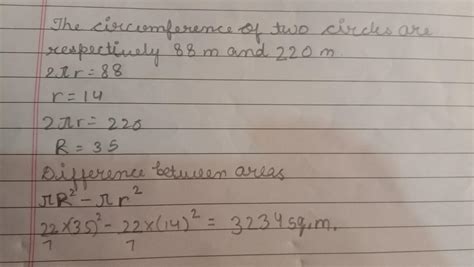 The circumference of two circles are
respectively 88 m and 220 m.
2πr = 88
r = 14
2πr = 220
R = 35
Difference between areas
πR² - πr²
22/7 × (35)² - 22/7 × (14)² = 3234 sq.m.